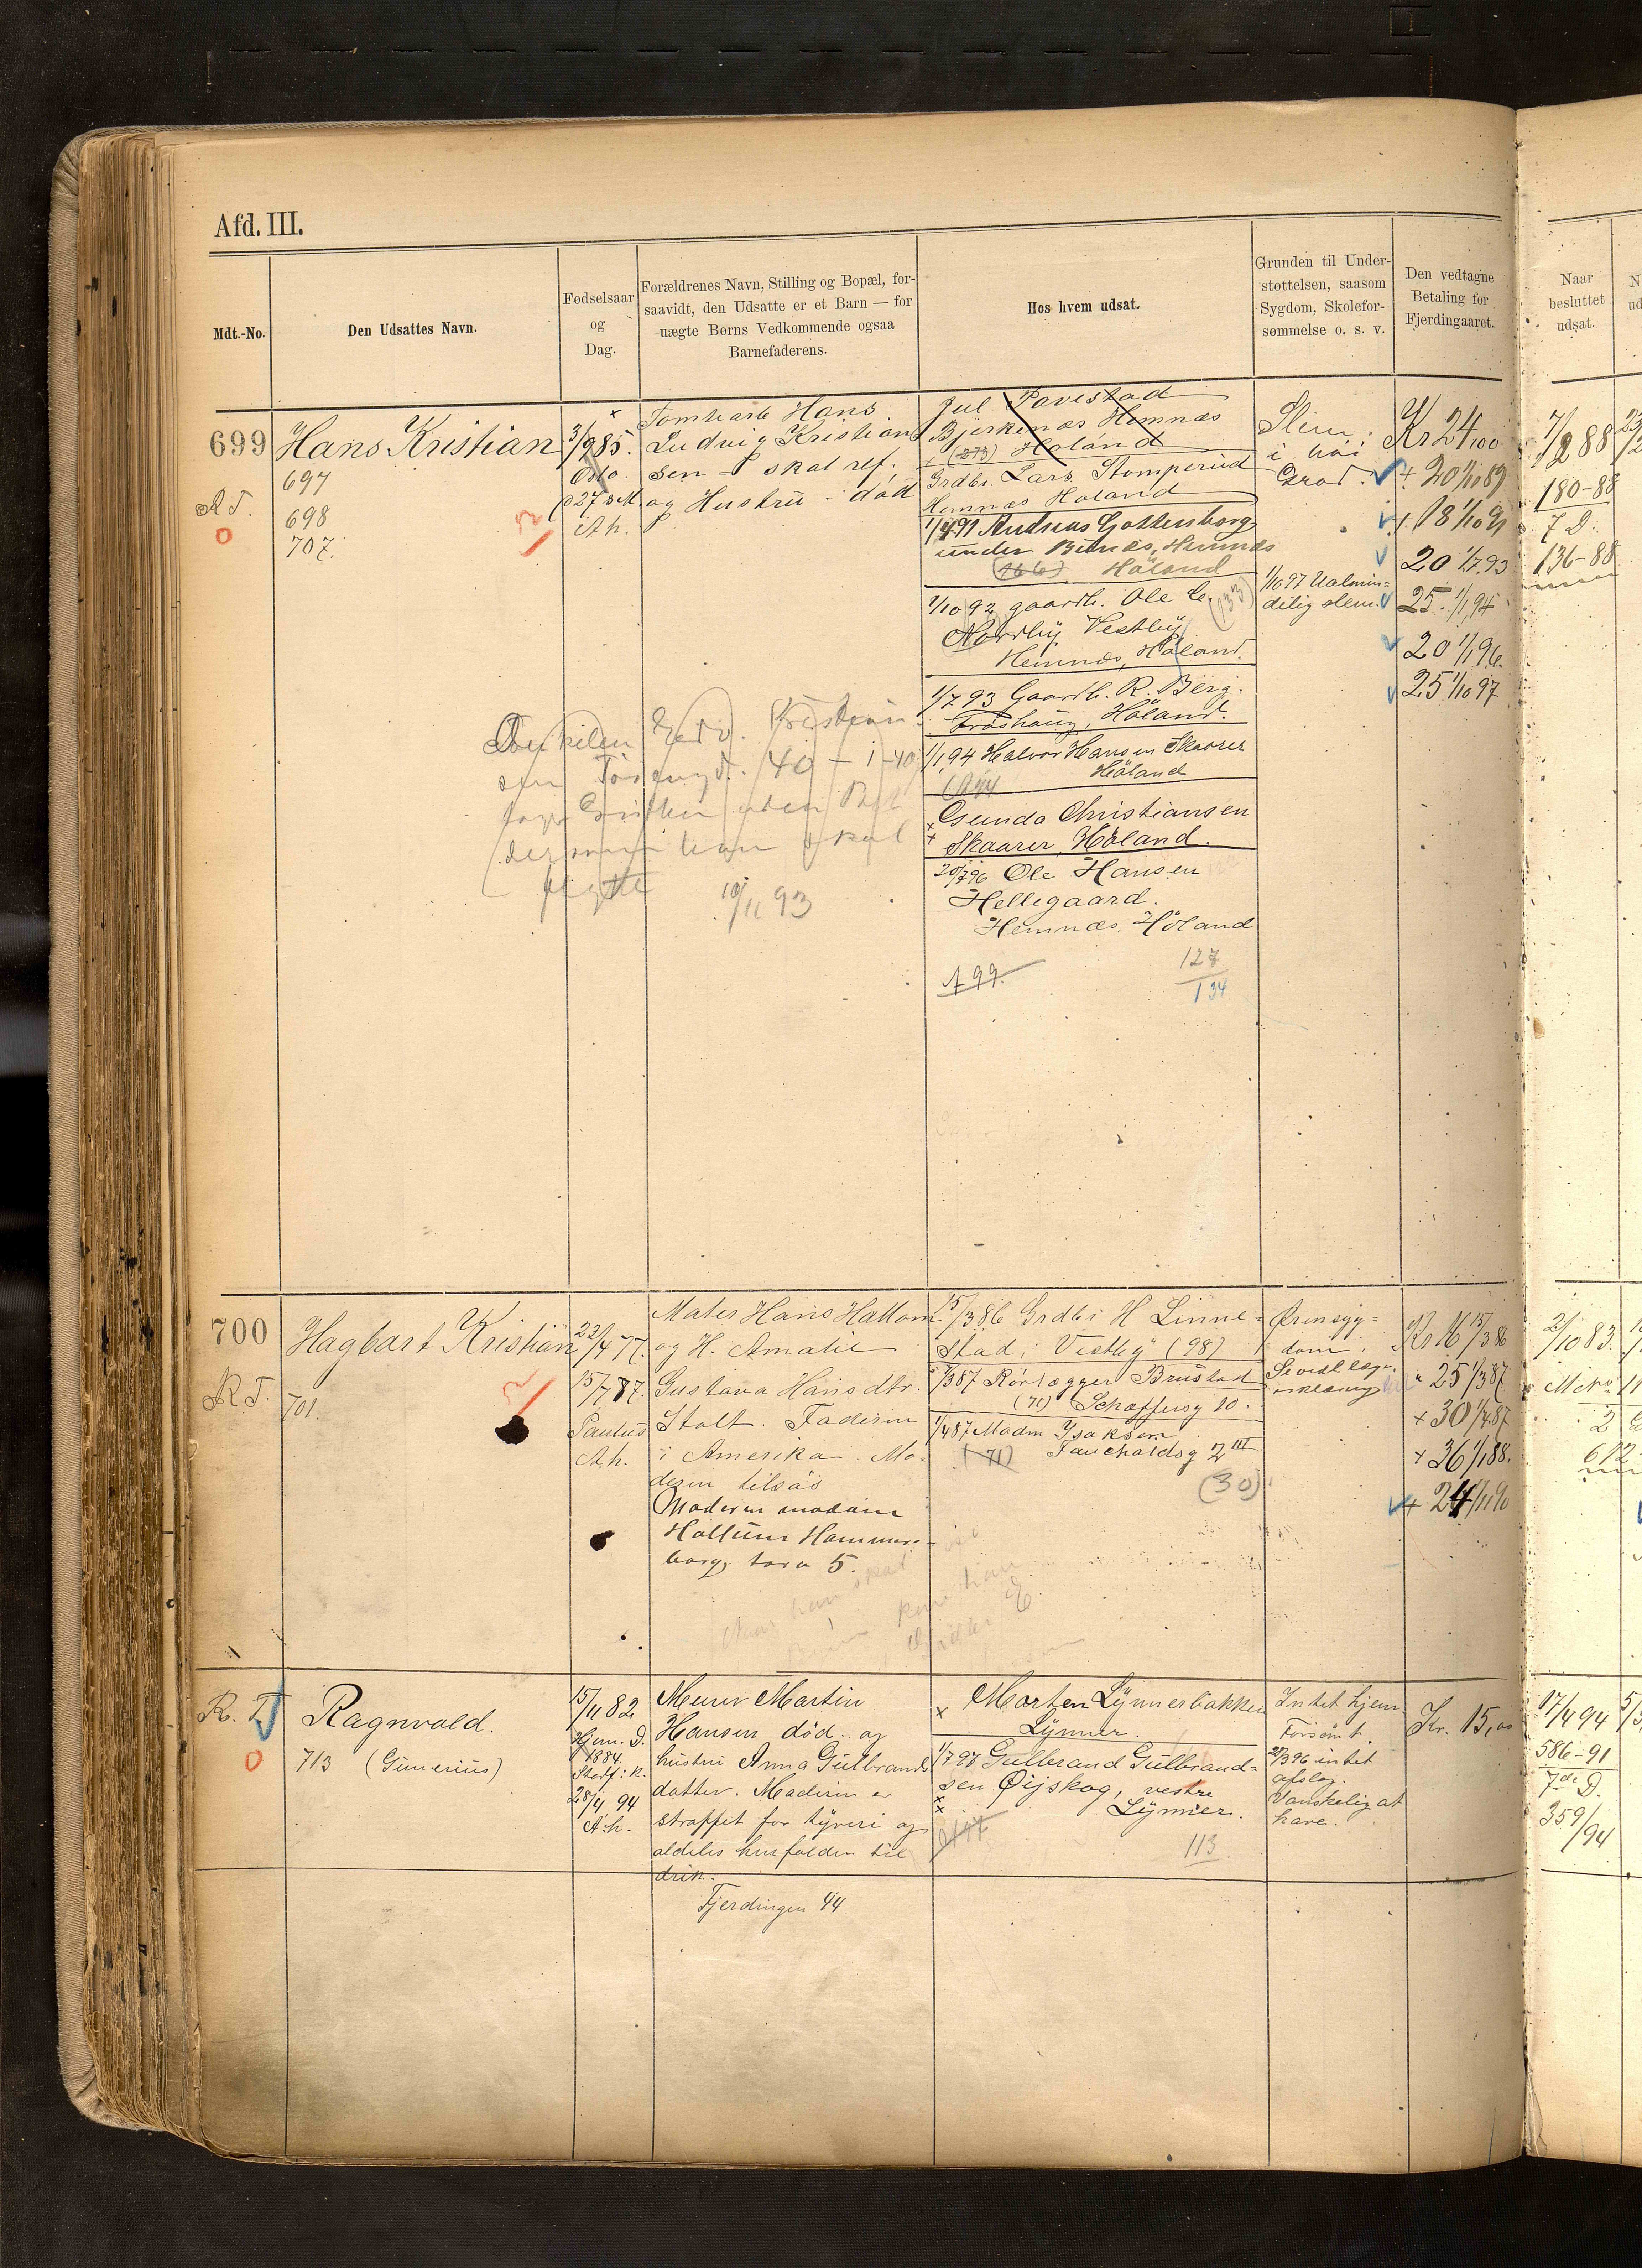 Afd. III.
Mdt.-No.
Den Udsattes Navn.
Fødselsaar
og
Dag.
Forældrenes Navn, Stilling og Bopæl, for-
saavidt, den Udsatte er et Barn — for
uægte Børns Vedkommende ogsaa
Barnefaderens.
Hos hvem udsat.
Grunden til Under-
støttelsen, saasom
Sygdom, Skolefor-
sømmelse o. s. v.
Den vedtagne
Betaling for
Fjerdingaaret.
Naar
besluttet
udsat.
699
Hans Kristian
697
698
707.
3/9 85.
Oslo.
A.h.
Tomtearb Hans
Ludvig Kristian
sen - skal ref.
og Hustru - död
Jul Pavestad
Bjerkenæs Hemnæs
Høland
Grdbr. Lars Stomperud
Hemnæs Høland
1/4 91 Andreas Gottenborg
under Hemnæs
(166) Høland
1/10 92 gaardb. Ole
Nordby Vestby
Hemnæs, Høland.
(133)
1/7 93 Gaardb. R. Berg.
Froshaug, Höland.
1/1 94 Halvor Hansen Skaarer
Höland
Gunda Christiansen
Skaarer, Höland.
20/7 96 Ole Hansen
Hellegaard.
Hemnæs. Höland
127
134
199.
Slem
i høi
Grad.
1/10 97 Ualmin-
delig slem.
Kr 24,00
+ 20 1/10 89
+ 18 1/10 91
20 1/7 93
25 1/1 94
20 1/1 96.
25 1/10 97
7/2 88
180-88
7 D.
136-88
Kristian
10/11 93
700
Hagbart Kristian
701.
22/4 77.
15/7 87.
Paulus
A.h.
Maler Hans Hallom
og H. Amalie
Gustava Hansdtr.
Stolt. Faderen
i Amerika. Mo-
deren tilsøs
Moderen madam
Hallum Hammers-
borg, torv 5.
15/3 86 Grdbr H Linne-
stad i Vestby (98)
1/3 87 Rørlægger Brustad
(71) Schaffersg 10.
1/4 87 Madm Isaksen
(71) Fauchaldsg 2 III
(30)
Ørensyg-
dom.
Se vedl. læge-
erklæring
Kr 16 15/3 86
" 25 1/3 87
+ 30 1/4 87
+ 36 1/1 88.
+ 24 1/11 90
2/10 83.
R. T.
Ragnvald.
713 (Gunerius)
15/11 82
Hjem. D.
1884.
28/4 94
A.h.
Murer Martin
Hansen död. og
hustru Anna Gulbrands
datter. Moderen er
straffet for tyveri og
aldeles henfalden til
drik.
Fjerdingen 44
Morten Lynnerbakken
Lynner.
1/7 97 Gulbrand Gulbrand-
sen Øijskog, vestre
Lynner.
113
Intet hjem.
Forsømt.
27/3 96 intet
afslag.
Vanskelig at
have.
Kr. 15,00
17/4 94
586-91
7de D.
359/94